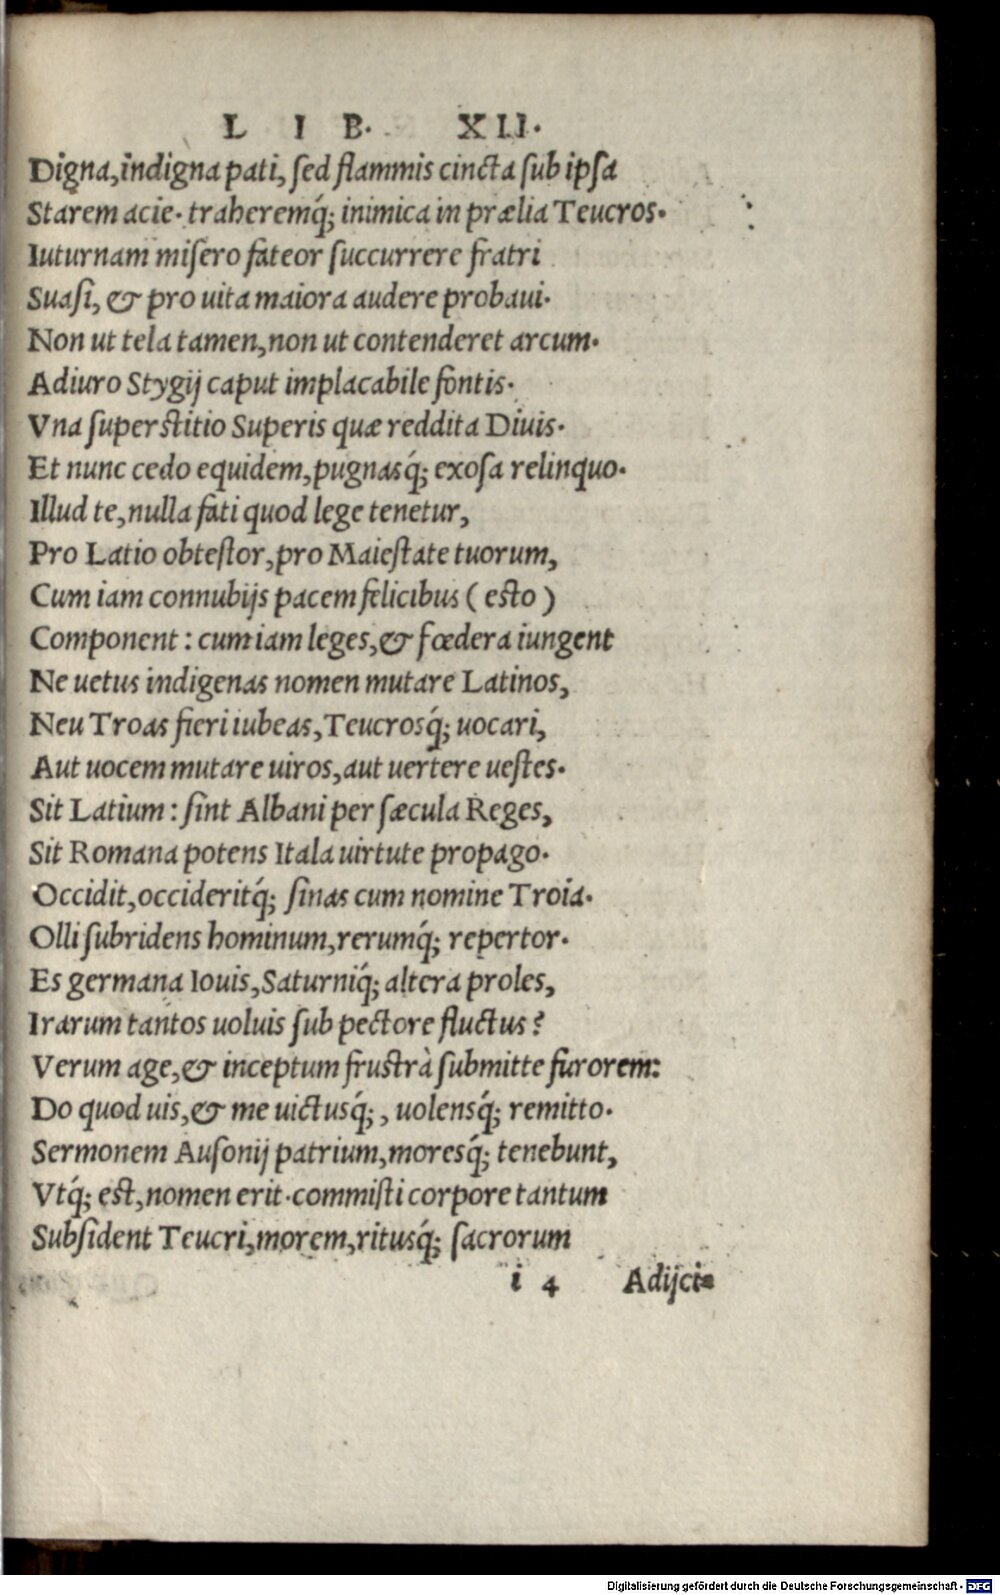 L I B. XII.
Digna, indigna pati, sed flammis cincta sub ipsa
Starem acie. traheremq́; inimica in prælia Teucros.
Iuturnam misero fateor succurrere fratri
Suasi, & pro uita maiora audere probaui.
Non ut tela tamen, non ut contenderet arcum.
Adiuro Stygij caput implacabile fontis.
Vna superstitio Superis quæ reddita Diuis.
Et nunc cedo equidem, pugnasq́; exosa relinquo.
Illud te, nulla fati quod lege tenetur,
Pro Latio obtestor, pro Maiestate tuorum,
Cum iam connubijs pacem felicibus ( esto )
Component : cum iam leges, & fœdera iungent
Ne uetus indigenas nomen mutare Latinos,
Neu Troas fieri iubeas, Teucrosq́; uocari,
Aut uocem mutare uiros, aut uertere uestes.
Sit Latium : sint Albani per sæcula Reges,
Sit Romana potens Itala uirtute propago.
Occidit, occideritq́; sinas cum nomine Troia.
Olli subridens hominum, rerumq́; repertor.
Es germana Iouis, Saturniq́; altera proles,
Irarum tantos uoluis sub pectore fluctus?
Verum age, & inceptum frustrà submitte furorem:
Do quod uis, & me uictusq́;, uolensq́; remitto.
Sermonem Ausonij patrium, moresq́; tenebunt,
Vtq́; est, nomen erit. commisti corpore tantum
Subsident Teucri, morem, ritusq́; sacrorum
i 4 Adijci=
Digitalisierung gefördert durch die Deutsche Forschungsgemeinschaft - DFG